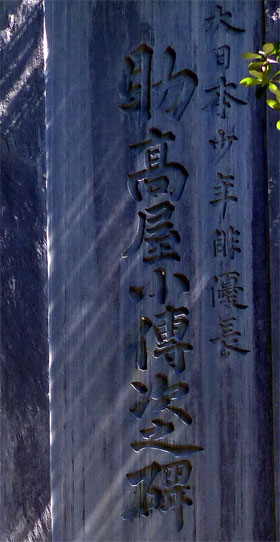 大日本少年俳優長
助高屋小傳次之碑